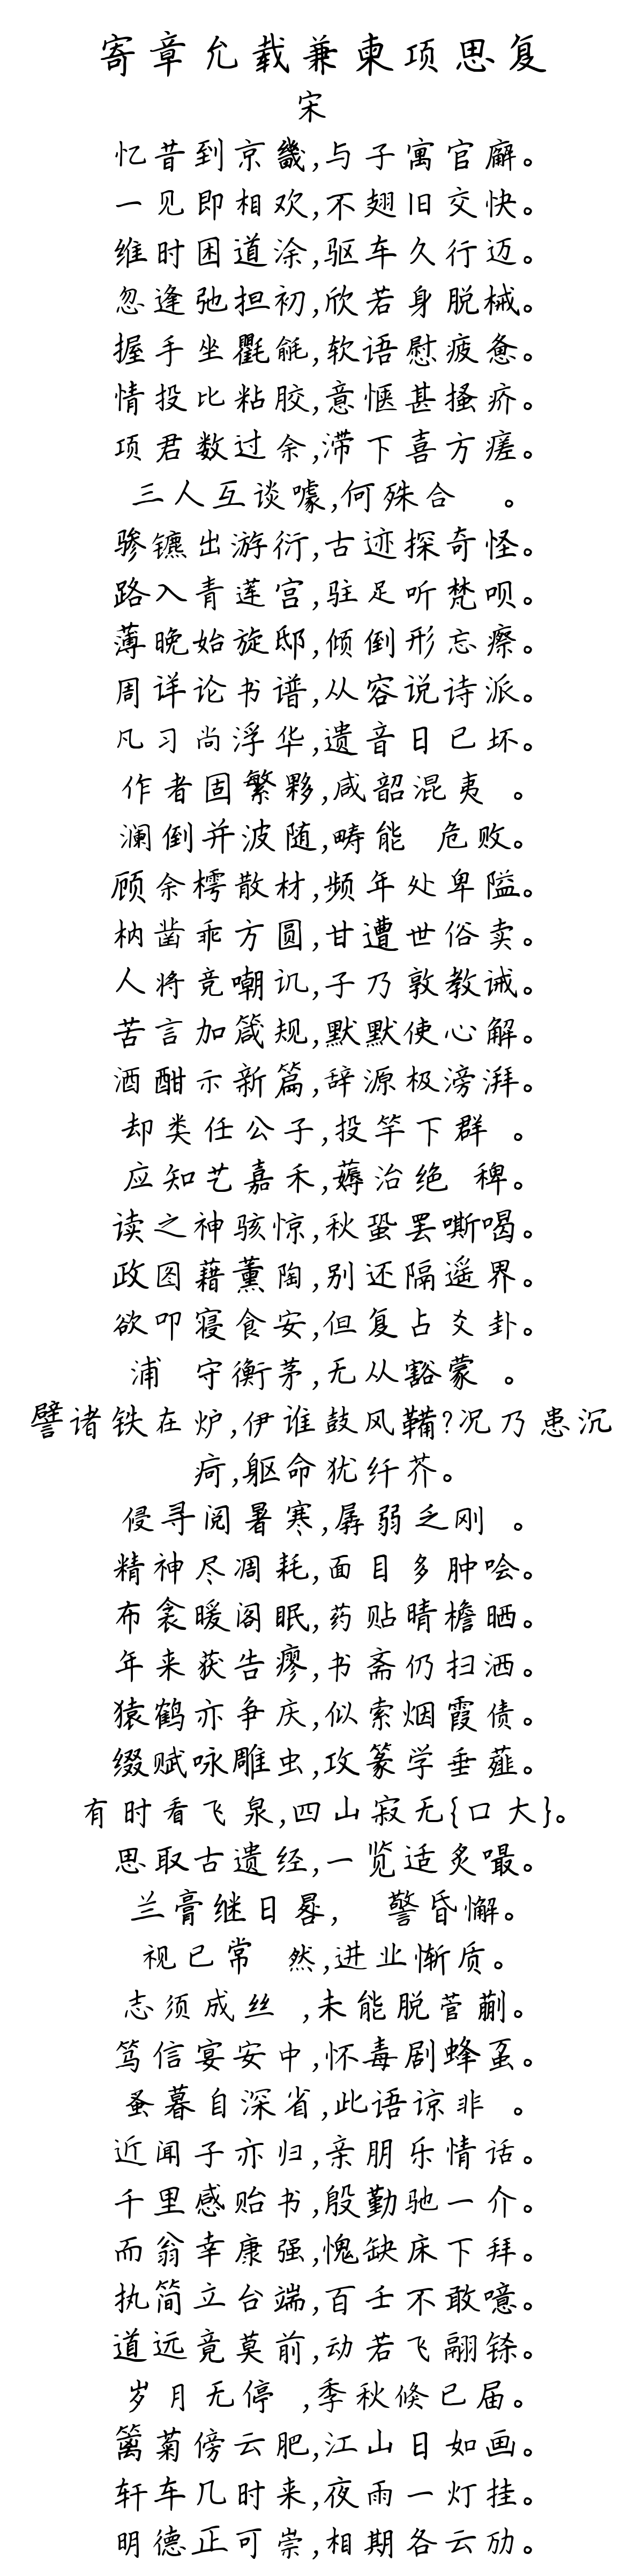 寄章允载兼柬项思复
宋
忆昔到京畿,与子寓官廨。
一见即相欢,不翅旧交快。
维时困道涂,驱车久行迈。
忽逢弛担初,欣若身脱械。
握手坐氍毹,软语慰疲惫。
情投比粘胶,意惬甚搔疥。
项君数过余,滞下喜方瘥。
三人互谈噱,何殊合 。
骖镳出游衍,古迹探奇怪。
路入青莲宫,驻足听梵呗。
薄晚始旋邸,倾倒形忘瘵。
周详论书谱,从容说诗派。
凡习尚浮华,遗音日已坏。
作者固繁夥,咸韶混夷 。
澜倒并波随,畴能 危败。
顾余樗散材,频年处卑隘。
枘凿乖方圆,甘遭世俗卖。
人将竞嘲讥,子乃敦教诫。
苦言加箴规,默默使心解。
酒酣示新篇,辞源极滂湃。
却类任公子,投竿下群 。
应知艺嘉禾,薅治绝 稗。
读之神骇惊,秋蛩罢嘶喝。
政图藉薰陶,别还隔遥界。
欲叩寝食安,但复占爻卦。
浦 守衡茅,无从豁蒙 。
譬诸铁在炉,伊谁鼓风鞴?况乃患沉
疴,躯命犹纤芥。
侵寻阅暑寒,孱弱乏刚 。
精神尽凋耗,面目多肿哙。
布衾暖阁眠,药贴晴檐晒。
年来获告瘳,书斋仍扫洒。
猿鹤亦争庆,似索烟霞债。
缀赋咏雕虫,攻篆学垂薤。
有时看飞泉,四山寂无{口大}。
思取古遗经,一览适炙嘬。
兰膏继日晷, 警昏懈。
视已常 然,进业惭质。
志须成丝 ,未能脱菅蒯。
笃信宴安中,怀毒剧蜂虿。
蚤暮自深省,此语谅非 。
近闻子亦归,亲朋乐情话。
千里感贻书,殷勤驰一介。
而翁幸康强,愧缺床下拜。
执简立台端,百壬不敢噫。
道远竟莫前,动若飞翮铩。
岁月无停 ,季秋倏已届。
篱菊傍云肥,江山日如画。
轩车几时来,夜雨一灯挂。
明德正可崇,相期各云劢。